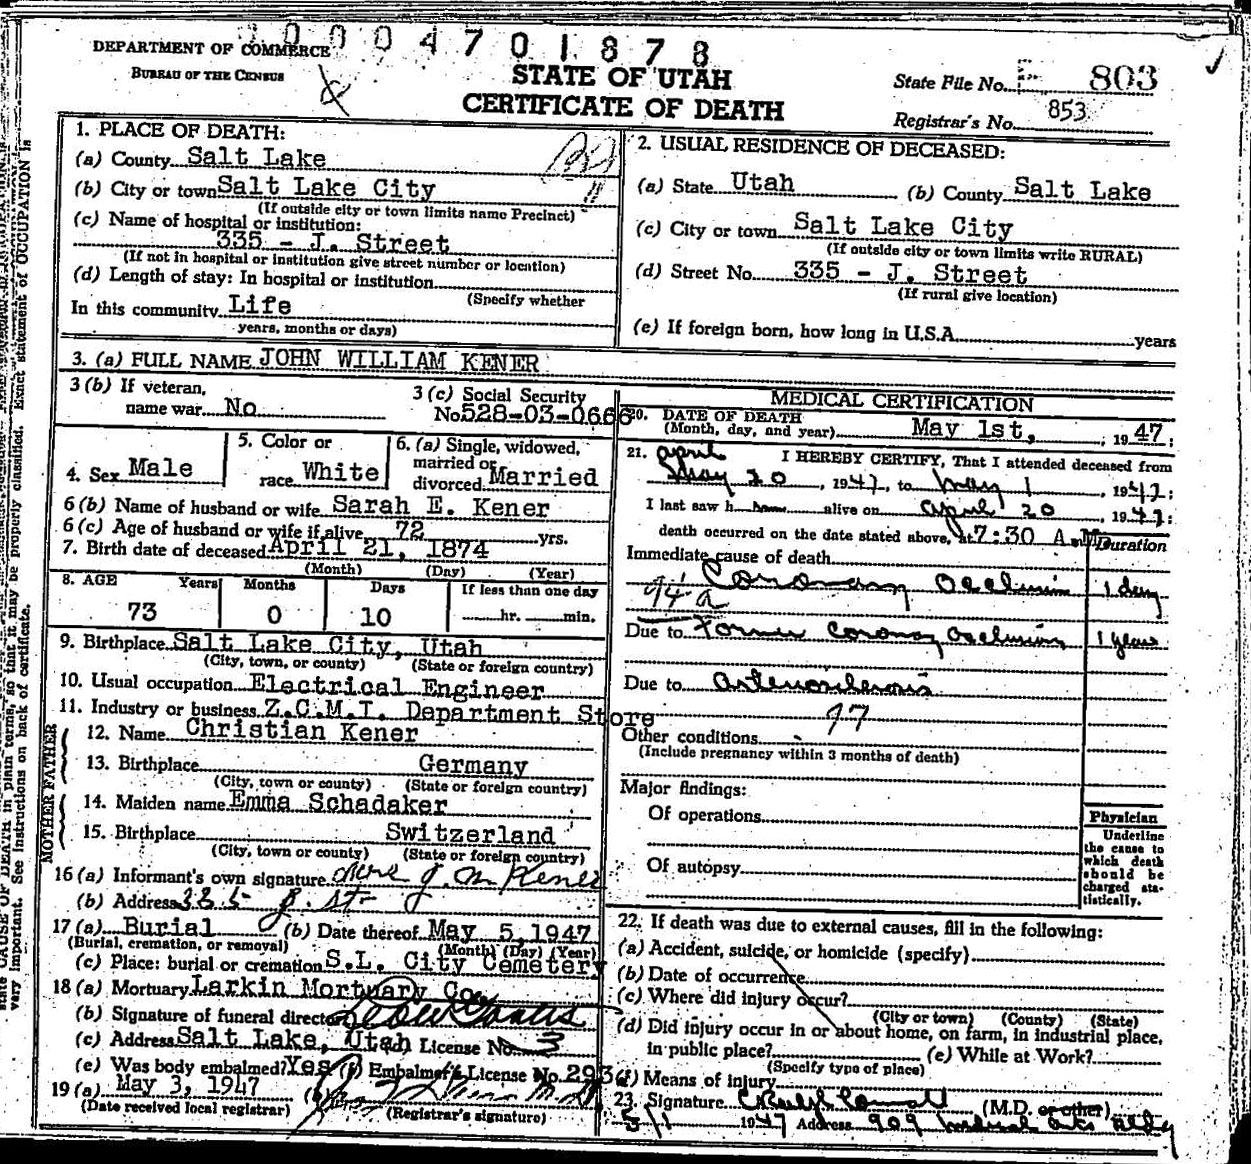 0004701878
DEPARTMENT OF COMMERCE
BUREAU OF THE CENSUS
STATE OF UTAH
CERTIFICATE OF DEATH
State File No. 803
Registrar's No. 853
1. PLACE OF DEATH:
(a) County Salt Lake
(b) City or town Salt Lake City
(If outside city or town limits name Precinct)
(c) Name of hospital or institution:
335 - J. Street
(If not in hospital or institution give street number or location)
(d) Length of stay: In hospital or institution
(Specify whether
In this community Life
years, months or days)
2. USUAL RESIDENCE OF DECEASED:
(a) State Utah (b) County Salt Lake
(c) City or town Salt Lake City
(If outside city or town limits write RURAL)
(d) Street No. 335 - J. Street
(If rural give location)
(e) If foreign born, how long in U.S.A. years
3. (a) FULL NAME JOHN WILLIAM KENER
3 (b) If veteran,
name war No
3 (c) Social Security
No. 528-03-0666
4. Sex Male
5. Color or
race White
6. (a) Single, widowed,
married or
divorced Married
6 (b) Name of husband or wife Sarah E. Kener
6 (c) Age of husband or wife if alive 72 yrs.
7. Birth date of deceased April 21, 1874
(Month) (Day) (Year)
8. AGE Years Months Days If less than one day
73 0 10 hr. min.
9. Birthplace Salt Lake City, Utah
(City, town, or county) (State or foreign country)
10. Usual occupation Electrical Engineer
11. Industry or business Z.C.M.I. Department Store
FATHER
12. Name Christian Kener
13. Birthplace Germany
(City, town or county) (State or foreign country)
MOTHER
14. Maiden name Emma Schadaker
15. Birthplace Switzerland
(City, town or county) (State or foreign country)
16 (a) Informant's own signature J. M Kener
(b) Address 335 J. St
17 (a) Burial (b) Date thereof May 5, 1947
(Burial, cremation, or removal) (Month) (Day) (Year)
(c) Place: burial or cremation S.L. City Cemetery
18 (a) Mortuary Larkin Mortuary Co.
(b) Signature of funeral director
(c) Address Salt Lake, Utah License No. 3
(e) Was body embalmed? Yes (f) Embalmer's License No. 293
19 (a) May 3, 1947 (b)
(Date received local registrar) (Registrar's signature)
MEDICAL CERTIFICATION
20. DATE OF DEATH
(Month, day, and year) May 1st, , 1947;
21. I HEREBY CERTIFY, That I attended deceased from
April
May 20, 1947, to May 1, 1947;
I last saw h im alive on April 20, 1947;
death occurred on the date stated above, at 7:30 A. M.
Duration
Immediate cause of death
Coronary Occlusion 1 day
94a
Due to Former Coronary Occlusion 1 year
Due to Arteriosclerosis
97
Other conditions
(Include pregnancy within 3 months of death)
Major findings:
Of operations
Of autopsy
Physician
Underline
the cause to
which death
should be
charged sta-
tistically.
22. If death was due to external causes, fill in the following:
(a) Accident, suicide, or homicide (specify)
(b) Date of occurrence
(c) Where did injury occur?
(City or town) (County) (State)
(d) Did injury occur in or about home, on farm, in industrial place,
in public place? (e) While at Work?
(Specify type of place)
(f) Means of injury
23. Signature (M.D. or other)
5/1 1947 Address 909 Medical Arts Bldg